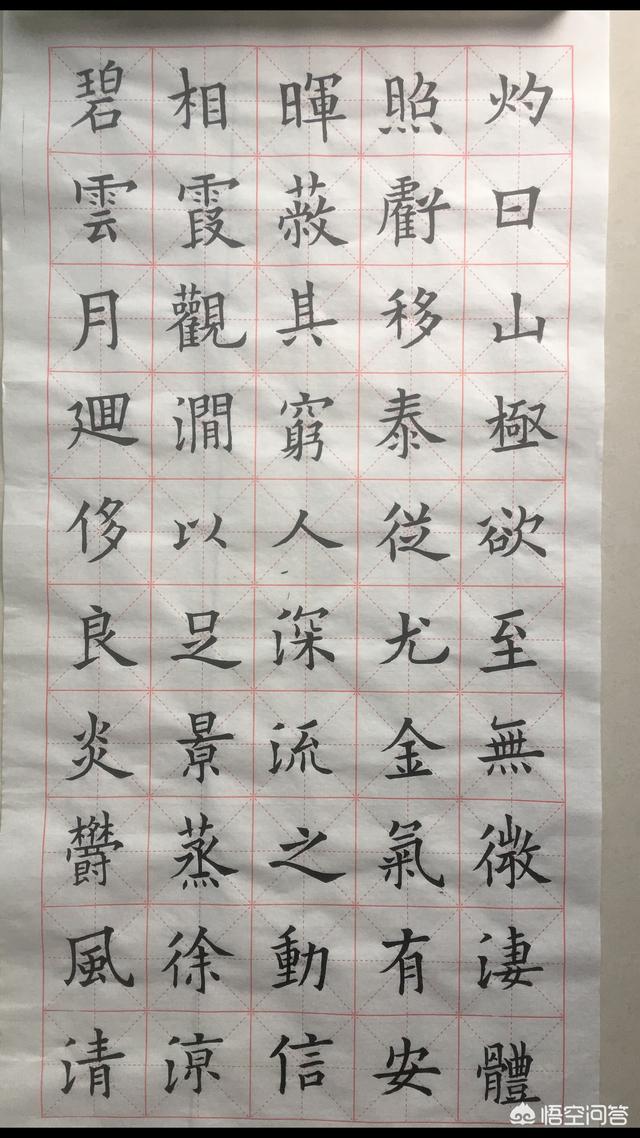 碧相暉照灼
雲霞蔽虧日
月觀其移山
迴澗窮泰極
侈以人從欲
良足深尤至
炎景流金無
欝蒸之氣微
風徐動有淒
清涼信安體
悟空问答